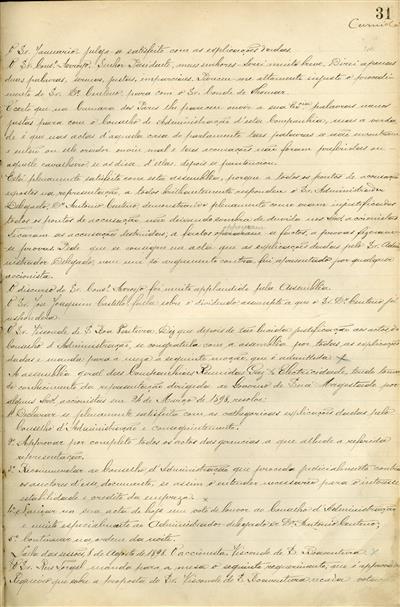 31
O Sr. Januario julga-se satisfeito com as explicações dadas.
O Sr. Consº Arroyo: Senhor Presidente, meus senhores: Serei muito breve. Direi apenas
duas palavras, creio, justas, imparciaes. Parece-me altamente injusto o procedi-
mento do Sr. Dr. Centeno, para com o Sr. Conde de
É certo que na Camara dos Pares lhe pareceu ouvir a sua Exª palavras menos
justas para com o Conselho de Administração d'esta Companhia, mas a verda-
de é que nas actas d'aquella casa do parlamento taes palavras se não encontram
e entre ou elle orador ouviu mal e taes accusações não foram proferidas ou
aquelle cavalheiro, se as disse d'ellas depois se penitenciou.
Está plenamente satisfeito com esta assembléa, porque a todos os pontos de accusação
expostos na representação, a todos brilhantemente respondeu o Sr. Administrador
Delegado, Dr. Antonio Centeno, demonstrando plenamente como eram injustificados
todos os pontos de accusação não deixando sombra de duvida nos Snrs accionistas
Ficaram as accusações destruidas, a factos oppozeram-se factos, a provas fizeram-
se provas. Pede que se consigne na acta que as explicações dadas pelo Sr. Admi-
nistrador Delegado, nem um só argumento contra foi apresentado por qualquer
accionista.
O discurso do Sr. Consº Arroyo foi muito applaudido pela Assembléa.
O Sr. José Joaquim Castello falla sobre o dividendo assumpto a que o Sr. Dr. Centeno já
respondera.
O Sr. Visconde de S. Boa Ventura Diz que depois de tão lucida justificação aos actos do
Conselho d'Administração, se congratula com a assembléa por todas as explicações
dadas e manda para a meza a seguinte moção que é admittida
A assembléa geral das Companhias Reunidas Gaz e Electricidade, tendo tomado
conhecimento da representação dirigida ao Governo de Sua Magestade por
alguns Snrs. accionistas em 24 de Março de 1898, resolve:
1º Declarar-se plenamente satisfeita com as cathegoricas explicações dadas pelo
Conselho d'Administração e consequentemente:
2º Approvar por completo todos os actos das gerencias, a que allude a referida
representação.
3º Recommendar ao Conselho d'Administração que proceda judicialmente contra
os auctores d'esse documento, se assim o entender necessario para o interesse
estabilidade e credito da empreza.
4º Consignar na sua acta de hoje um voto de louvor ao Conselho d'Administração
e muito especialmente ao Administrador delegado Sr. Dr. Antonio Centeno;
5º Continuar na ordem da noite.
Salla das sessões, 8 de Agosto de 1898. O accionista, Visconde de S. Boaventura
O Sr. manda para a meza o seguinte requerimento, que é approvado
Requeiro que sobre a proposta do Sr. Visconde de S. Boaventura recaia votação